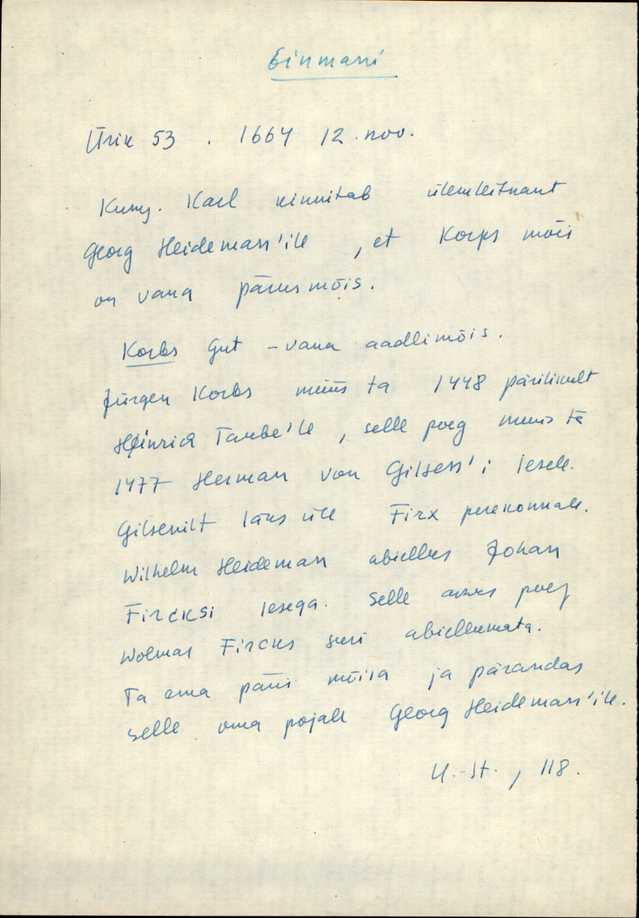 Einmani
Ürik 53. 1664 12. nov.
Kung. Karl kinnitab ülemleitnant
Georg Heideman'ile, et Korps mõis
on vana pärusmõis.
Korbs Gut - vana aadlimõis.
Jürgen Korbs müüs ta 1448 päriliselt
Heinrich Taube'le, selle poeg müüs ta
1477 Herman von Gilsen'i lesele.
Gilsenilt läks üle Firx perekonnale.
Wilhelm Heideman abiellus Johan
Fircksi lesega. Selle poeg
Wolmar Fircks suri abiellumata.
Ta ema päris mõisa ja pärandas
selle oma pojale Georg Heideman'ile.
U.-St., 118.